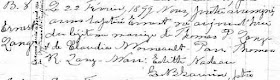 B. 8
Ernest
Lang
Le 22 Février, 1899 Nous Prêtre soussigné
avons baptisé Ernest né aujourd'hui
du légitime mariage de Thomas P. Lang
et de Claudia Par. Thomas
R. Lang. Mar. Edith Nadeau
Ptre